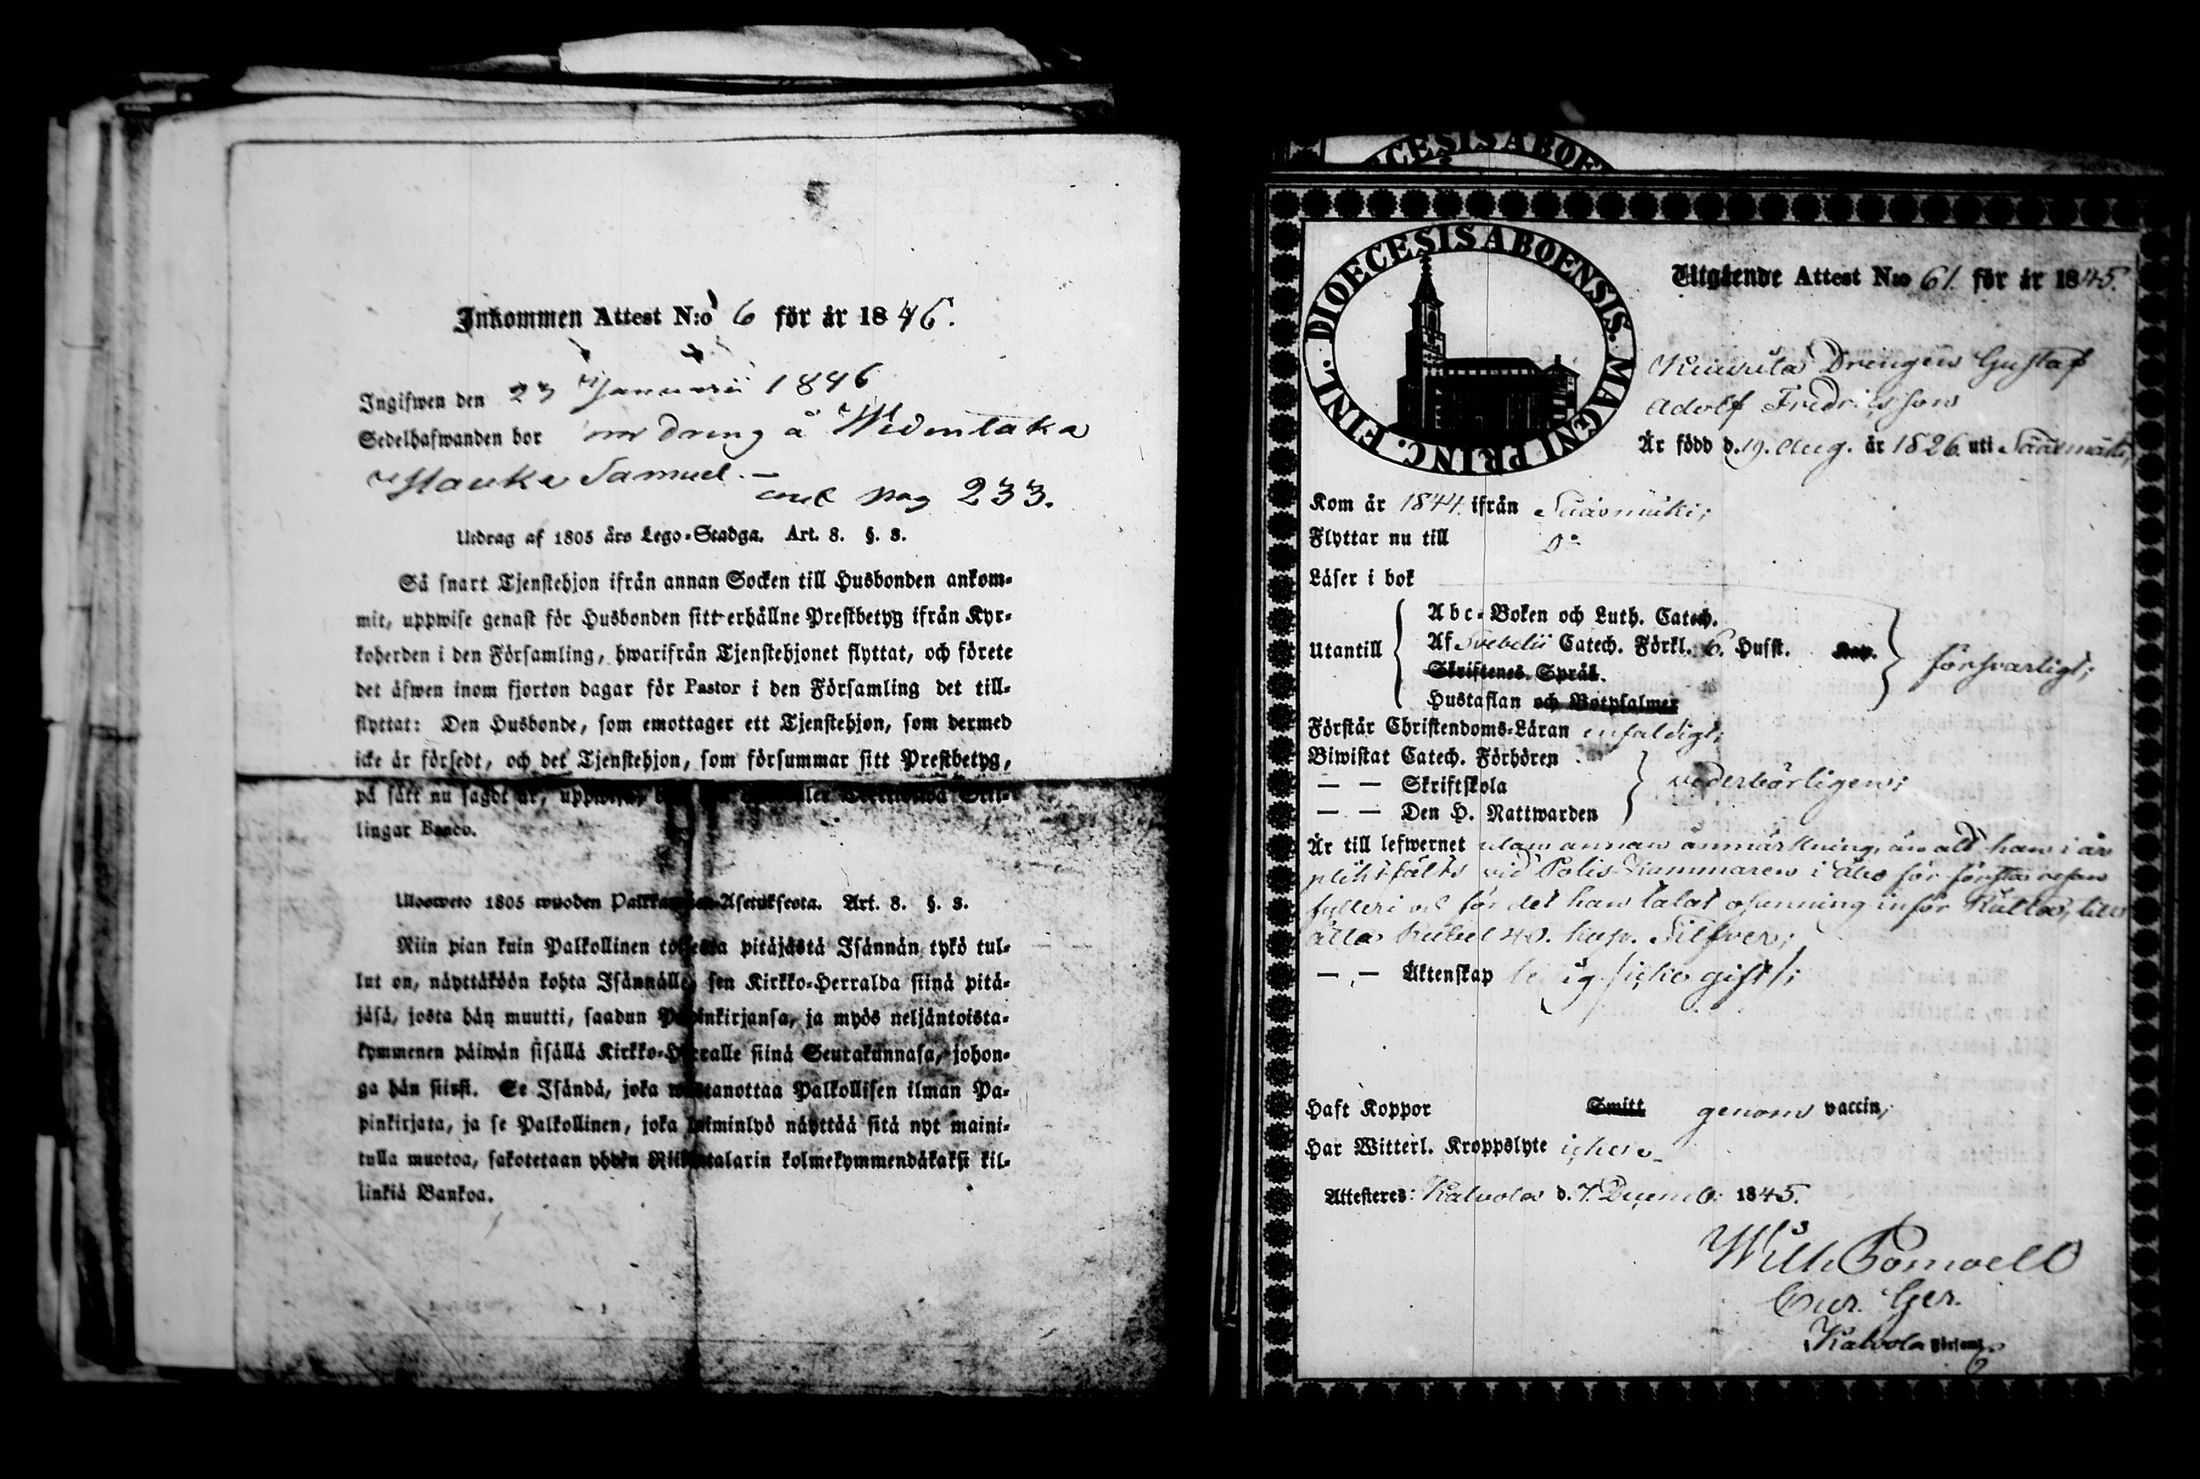 Inkommen Attest N:o 6 för år 1846.
Ingifwen den 23 Januarii 1846
Sedelhafwanden bor som dreng å Wedentaka
Mauka Samuel. —
cont pag 233.
Utdrag af 1805 års Lego-Stadga. Art. 8. §. 8.
Så snart Tjenstehjon ifrån annan Socken till Husbonden ankom-
mit, uppwise genast för Husbonden sitt erhållne Prestbetyg ifrån Kyr-
koherden i den Församling, hwarifrån Tjenstehjonet flyttat, och förete
det äfwen inom fjorton dagar för Pastor i den Församling det till-
flyttat: Den Husbonde, som emottager ett Tjenstehjon, som dermed
icke är försedt, och det Tjenstehjon, som försummar sitt Prestbetyg,
på sätt nu sagdt är,
lingar Banco.
Ulosweto 1805 wuoden Asetuksesta. Art. 8. §. 8.
Niin pian kuin Palkollinen toisesta pitäjästä Isännän tykö tul-
lut on, näyttäköön kohta Isännälle, sen Kirkko-Herralda siinä pitä-
jäsä, josta hän muutti, saadun Papinkirjansa, ja myös neljäntoista-
kymmenen päiwän sisällä Kirkko-Herralle siinä Seurakunnasa, johon-
ga hän siirsi. Se Isändä, joka wastanottaa Palkollisen ilman Pa-
pinkirjata, ja se Palkollinen, joka laiminlyö näyttää sitä nyt maini-
tulla muotoa, sakotetaan yhden Riikintalarin kolmekymmendäkaksi kil-
linkiä Bankoa.
DIOECESIS ABOE
DIOECESIS ABOENSIS. MAGNI PRINC. FINL.
Utgående Attest N:o 61. för år 1845.
Drengen Gustaf
Adolf Fredriksson
Är född d. 19. Aug. år 1826. uti Sääxmäki,
Kom år 1844 ifrån Sääxmäki;
Flyttar nu till D:o
Läser i bok
Abc-Boken och Luth. Catech.
Utantill Af Svebelii Catech. Förkl. 6. Husst. Kap. försvarligt;
Skriftenes Språk.
Hustaflan och Botpsalmer
Förstår Christendoms-Läran enfaldigt;
Biwistat Catech. Förhören
— — Skriftskola vederbörligen;
— — Den H. Nattwarden
Är till lefwernet utan annan anmärkning, än att han i år
pliktfälts vid Polis-Kammaren i Åbo för första resan
fylleri och för det han talat osanning inför Rätten, till
åtta Rubel 40. kop. Silfver;
— „ — Äktenskap ledig (icke gift);
Haft Koppor Smitt genom vaccin;
Har Witterl. Kroppslyte icke.
Attesteres: Kalvola d. 7. Decemb: 1845.
Wilh.
Cur. Ger.
Kalvola Församl.